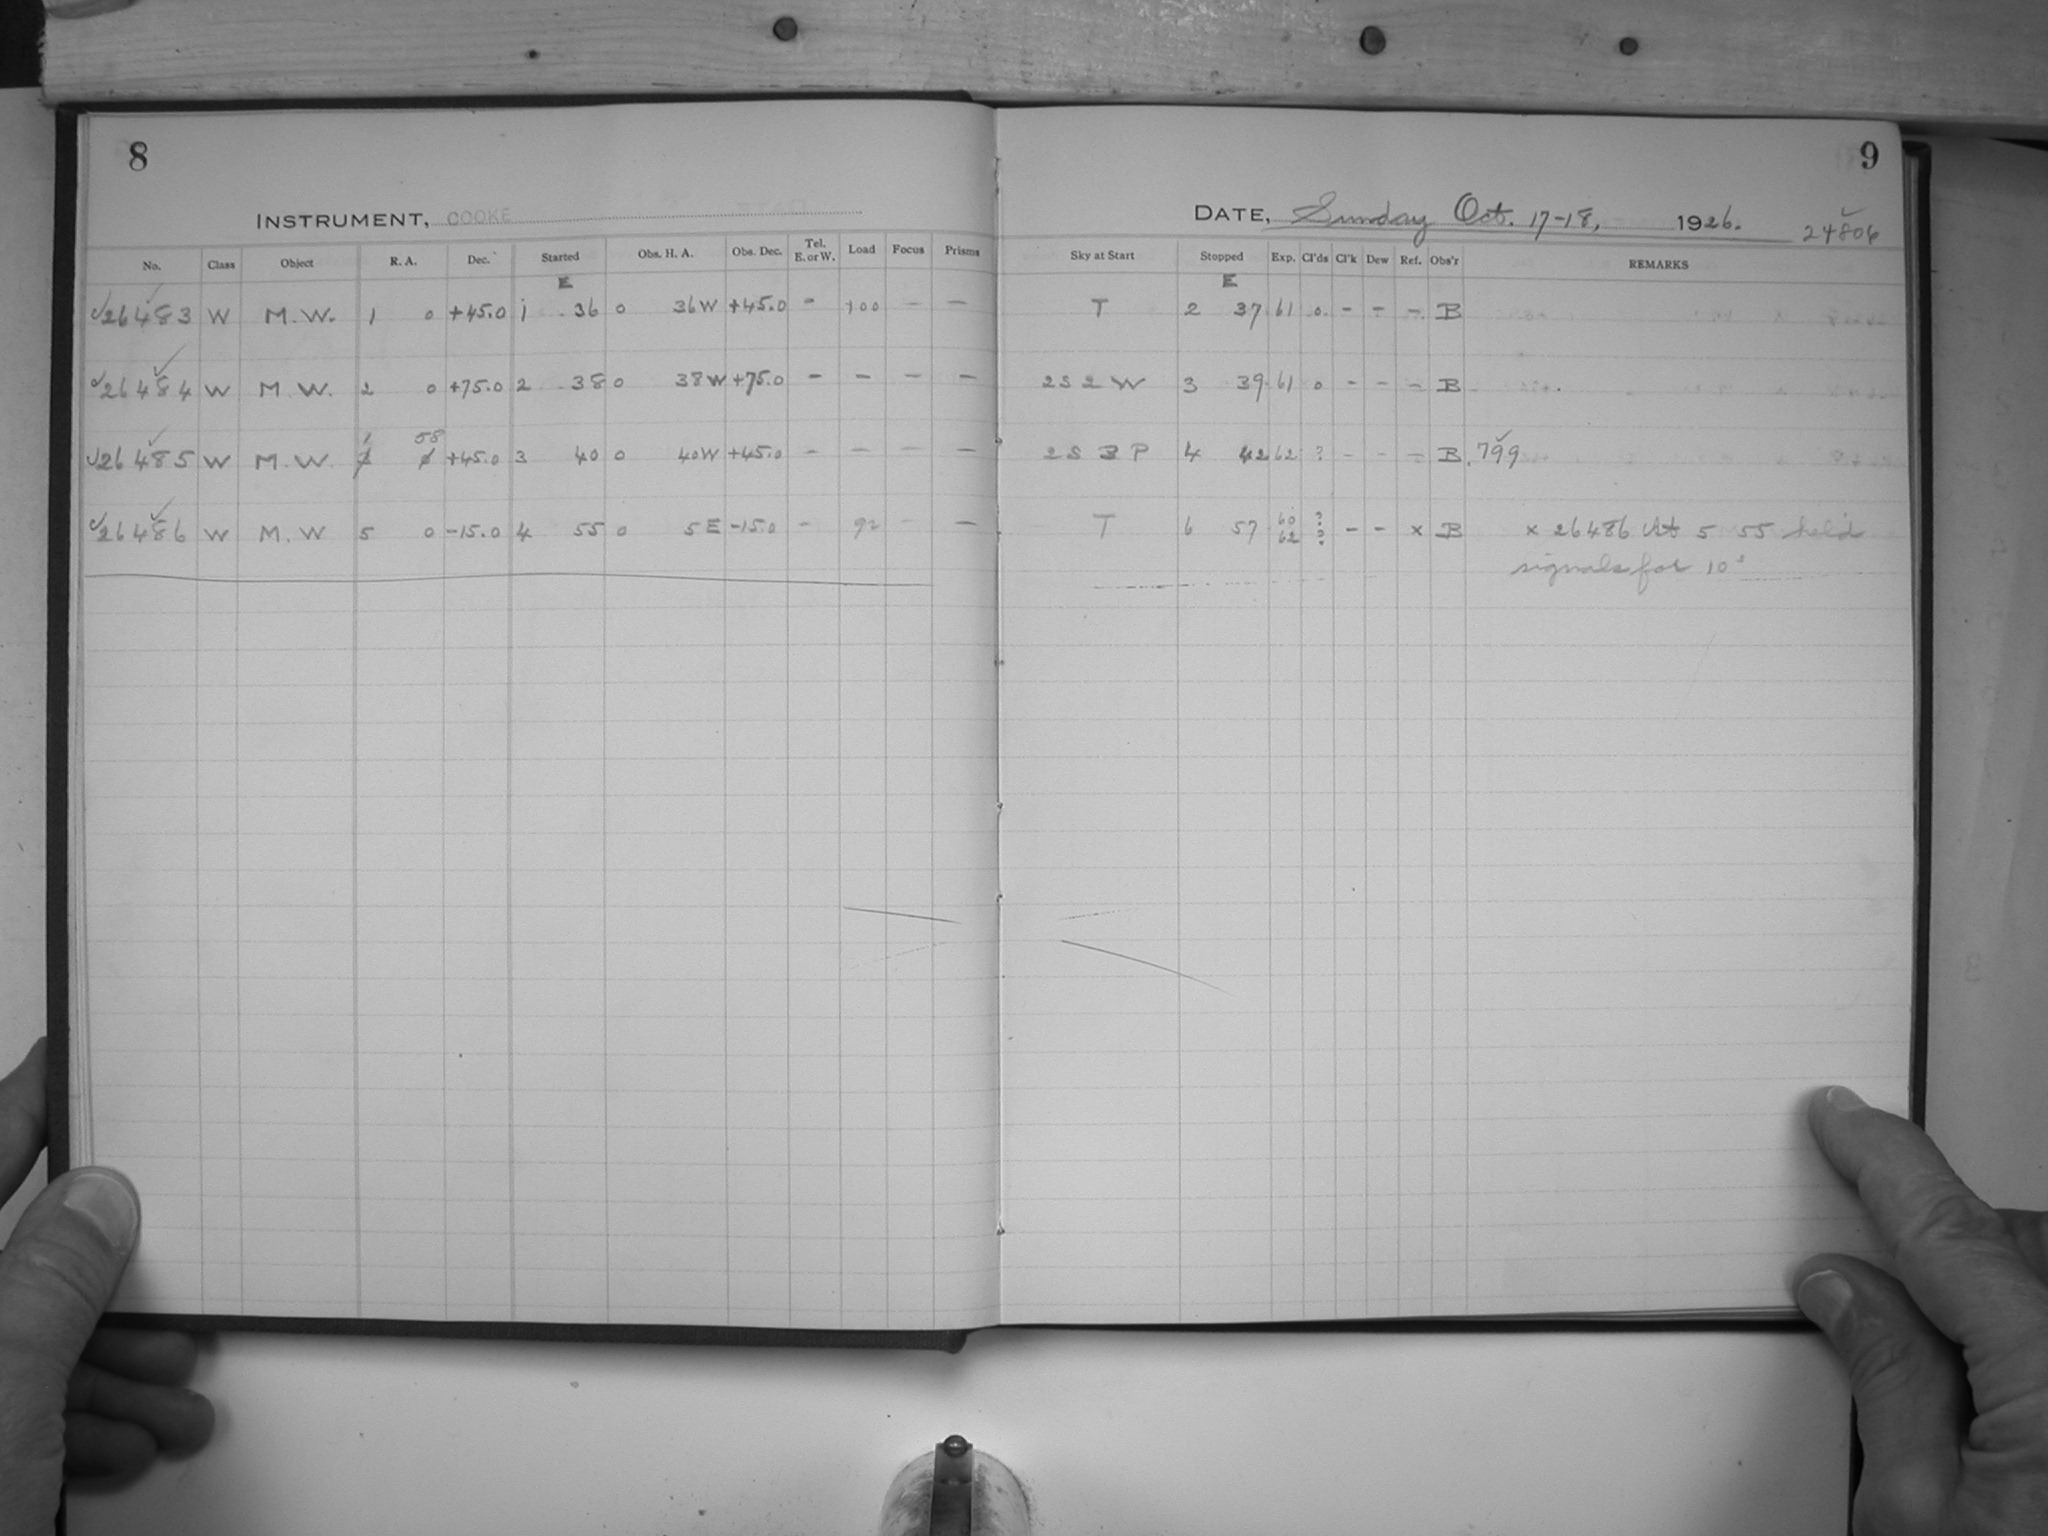 8
INSTRUMENT, COOKE
No. Class Object R. A. Dec. Started Obs. H. A. Obs. Dec. Tel. E. or W. Load Focus Prisms
E
26483 W M.W. 1 0 +45.0 1 36 0 36W +45.0 - 100 - -
26484 W M.W. 2 0 +75.0 2 38 0 38W +75.0 - - - -
1 58
26485 W M.W. +45.0 3 40 0 40W +45.0 - - - -
26486 W M.W 5 0 -15.0 4 55 0 5E -15.0 - 92 - -
9
DATE, Sunday Oct. 17-18, 1926.
24806
Sky at Start Stopped Exp. Cl'ds Cl'k Dew Ref. Obs'r REMARKS
E
T 2 37 61 0 - - - B
2S 2W 3 39 61 0 - - - B
2S 3P 4 42 62 ? - - - B 799
T 6 57 60 ? 62 ? - - x B x 26486 At 5 55 held
signals for 10s